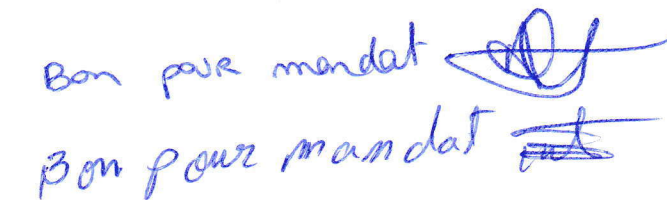 Bon pour mandat
Bon pour mandat